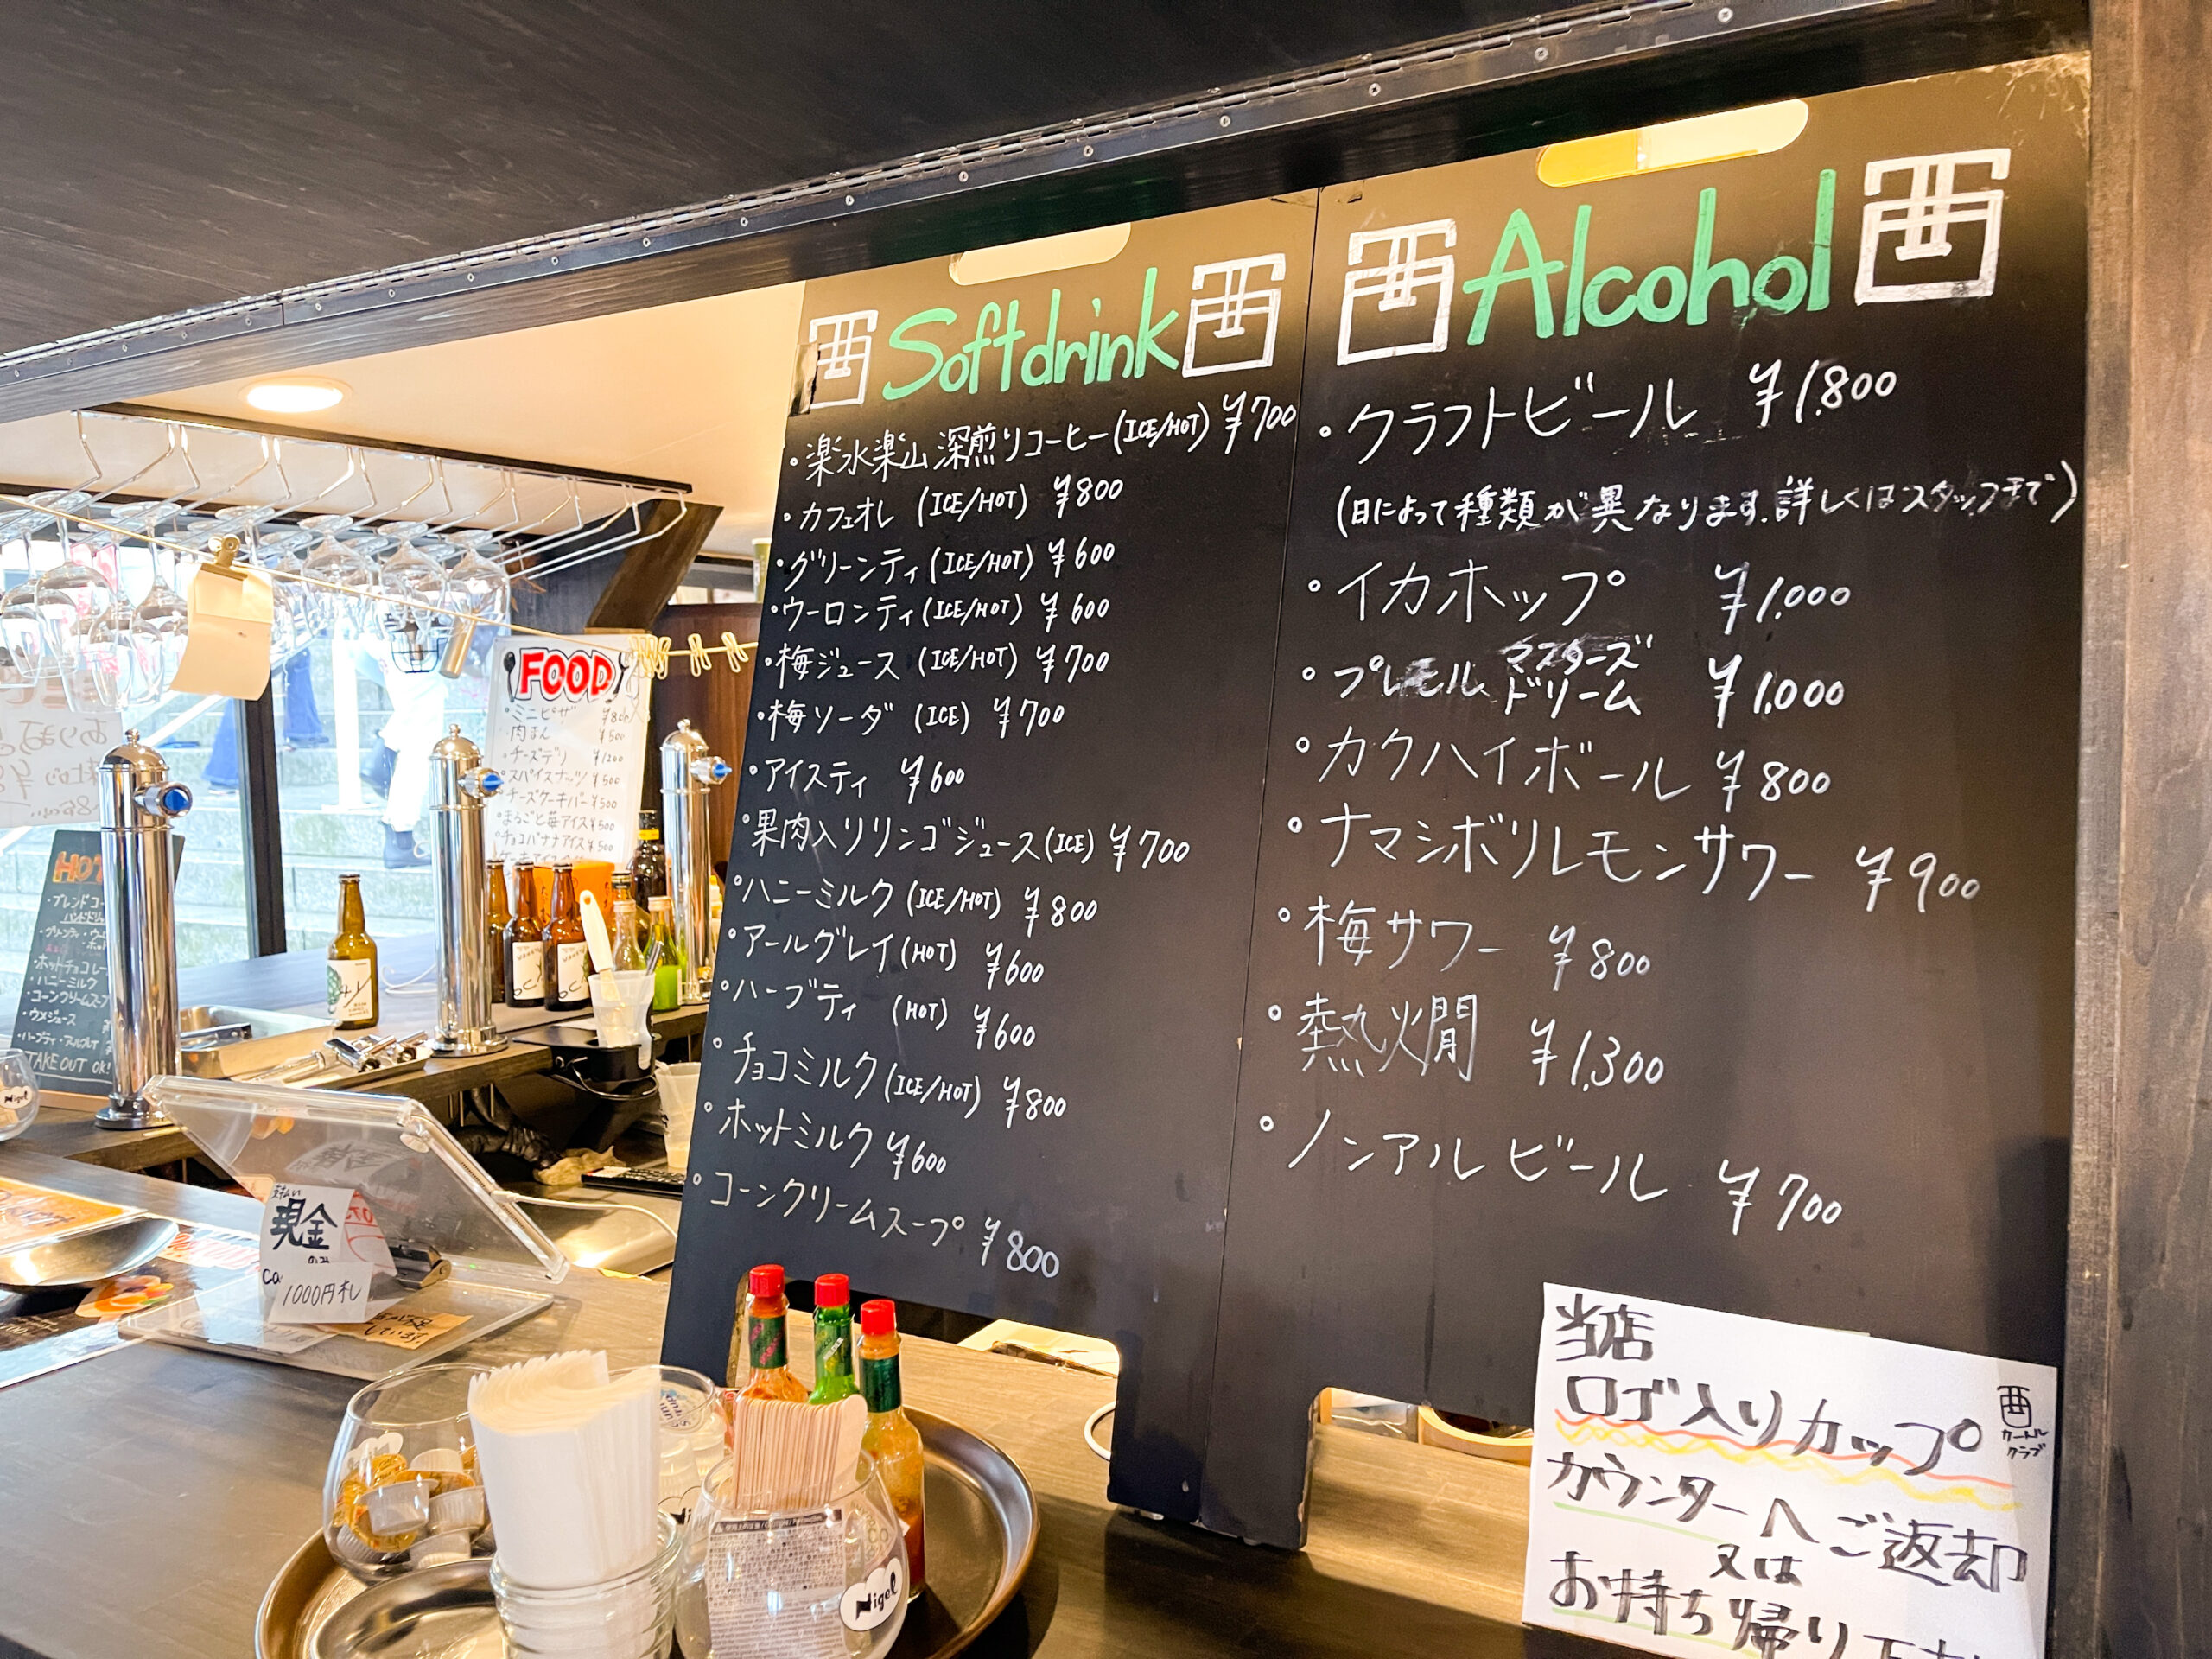 Softdrink
・楽水楽山深煎りコーヒー(ICE/HOT) ¥700
・カフェオレ (ICE/HOT) ¥800
・グリーンティ(ICE/HOT) ¥600
・ウーロンティ(ICE/HOT) ¥600
・梅ジュース (ICE/HOT) ¥700
・梅ソーダ (ICE) ¥700
・アイスティ ¥600
・果肉入りリンゴジュース(ICE) ¥700
・ハニーミルク(ICE/HOT) ¥800
・アールグレイ(HOT) ¥600
・ハーブティ (HOT) ¥600
・チョコミルク(ICE/HOT) ¥800
・ホットミルク ¥600
・コーンクリームスープ ¥800
Alcohol
・クラフトビール ¥1,800
(日によって種類が異なります.詳しくはスタッフまで)
・イカホップ ¥1,000
・プレモル マスターズドリーム ¥1,000
・カクハイボール ¥800
・ナマシボリレモンサワー ¥900
・梅サワー ¥800
・熱燗 ¥1,300
・ノンアルビール ¥700
当店
ロゴ入りカップ
カウンターへご返却
又は
お持ち帰り下さ
FOOD
・ミニピザ ¥800
・肉まん ¥500
・チーズデリ ¥1200
・スパイスナッツ ¥500
・チーズケーキバー ¥500
・まるごと苺アイス ¥500
・チョコバナナアイス ¥500
HOT
・ブレンドコー
・グリーンティ・ウー
・ホットチョコレー
・ハニーミルク
・コーンクリームスープ
・ウメジュース
・ハーブティ・アールグレイ
TAKE OUT OK!
支払い
現金
のみ
1000円札
Nigel